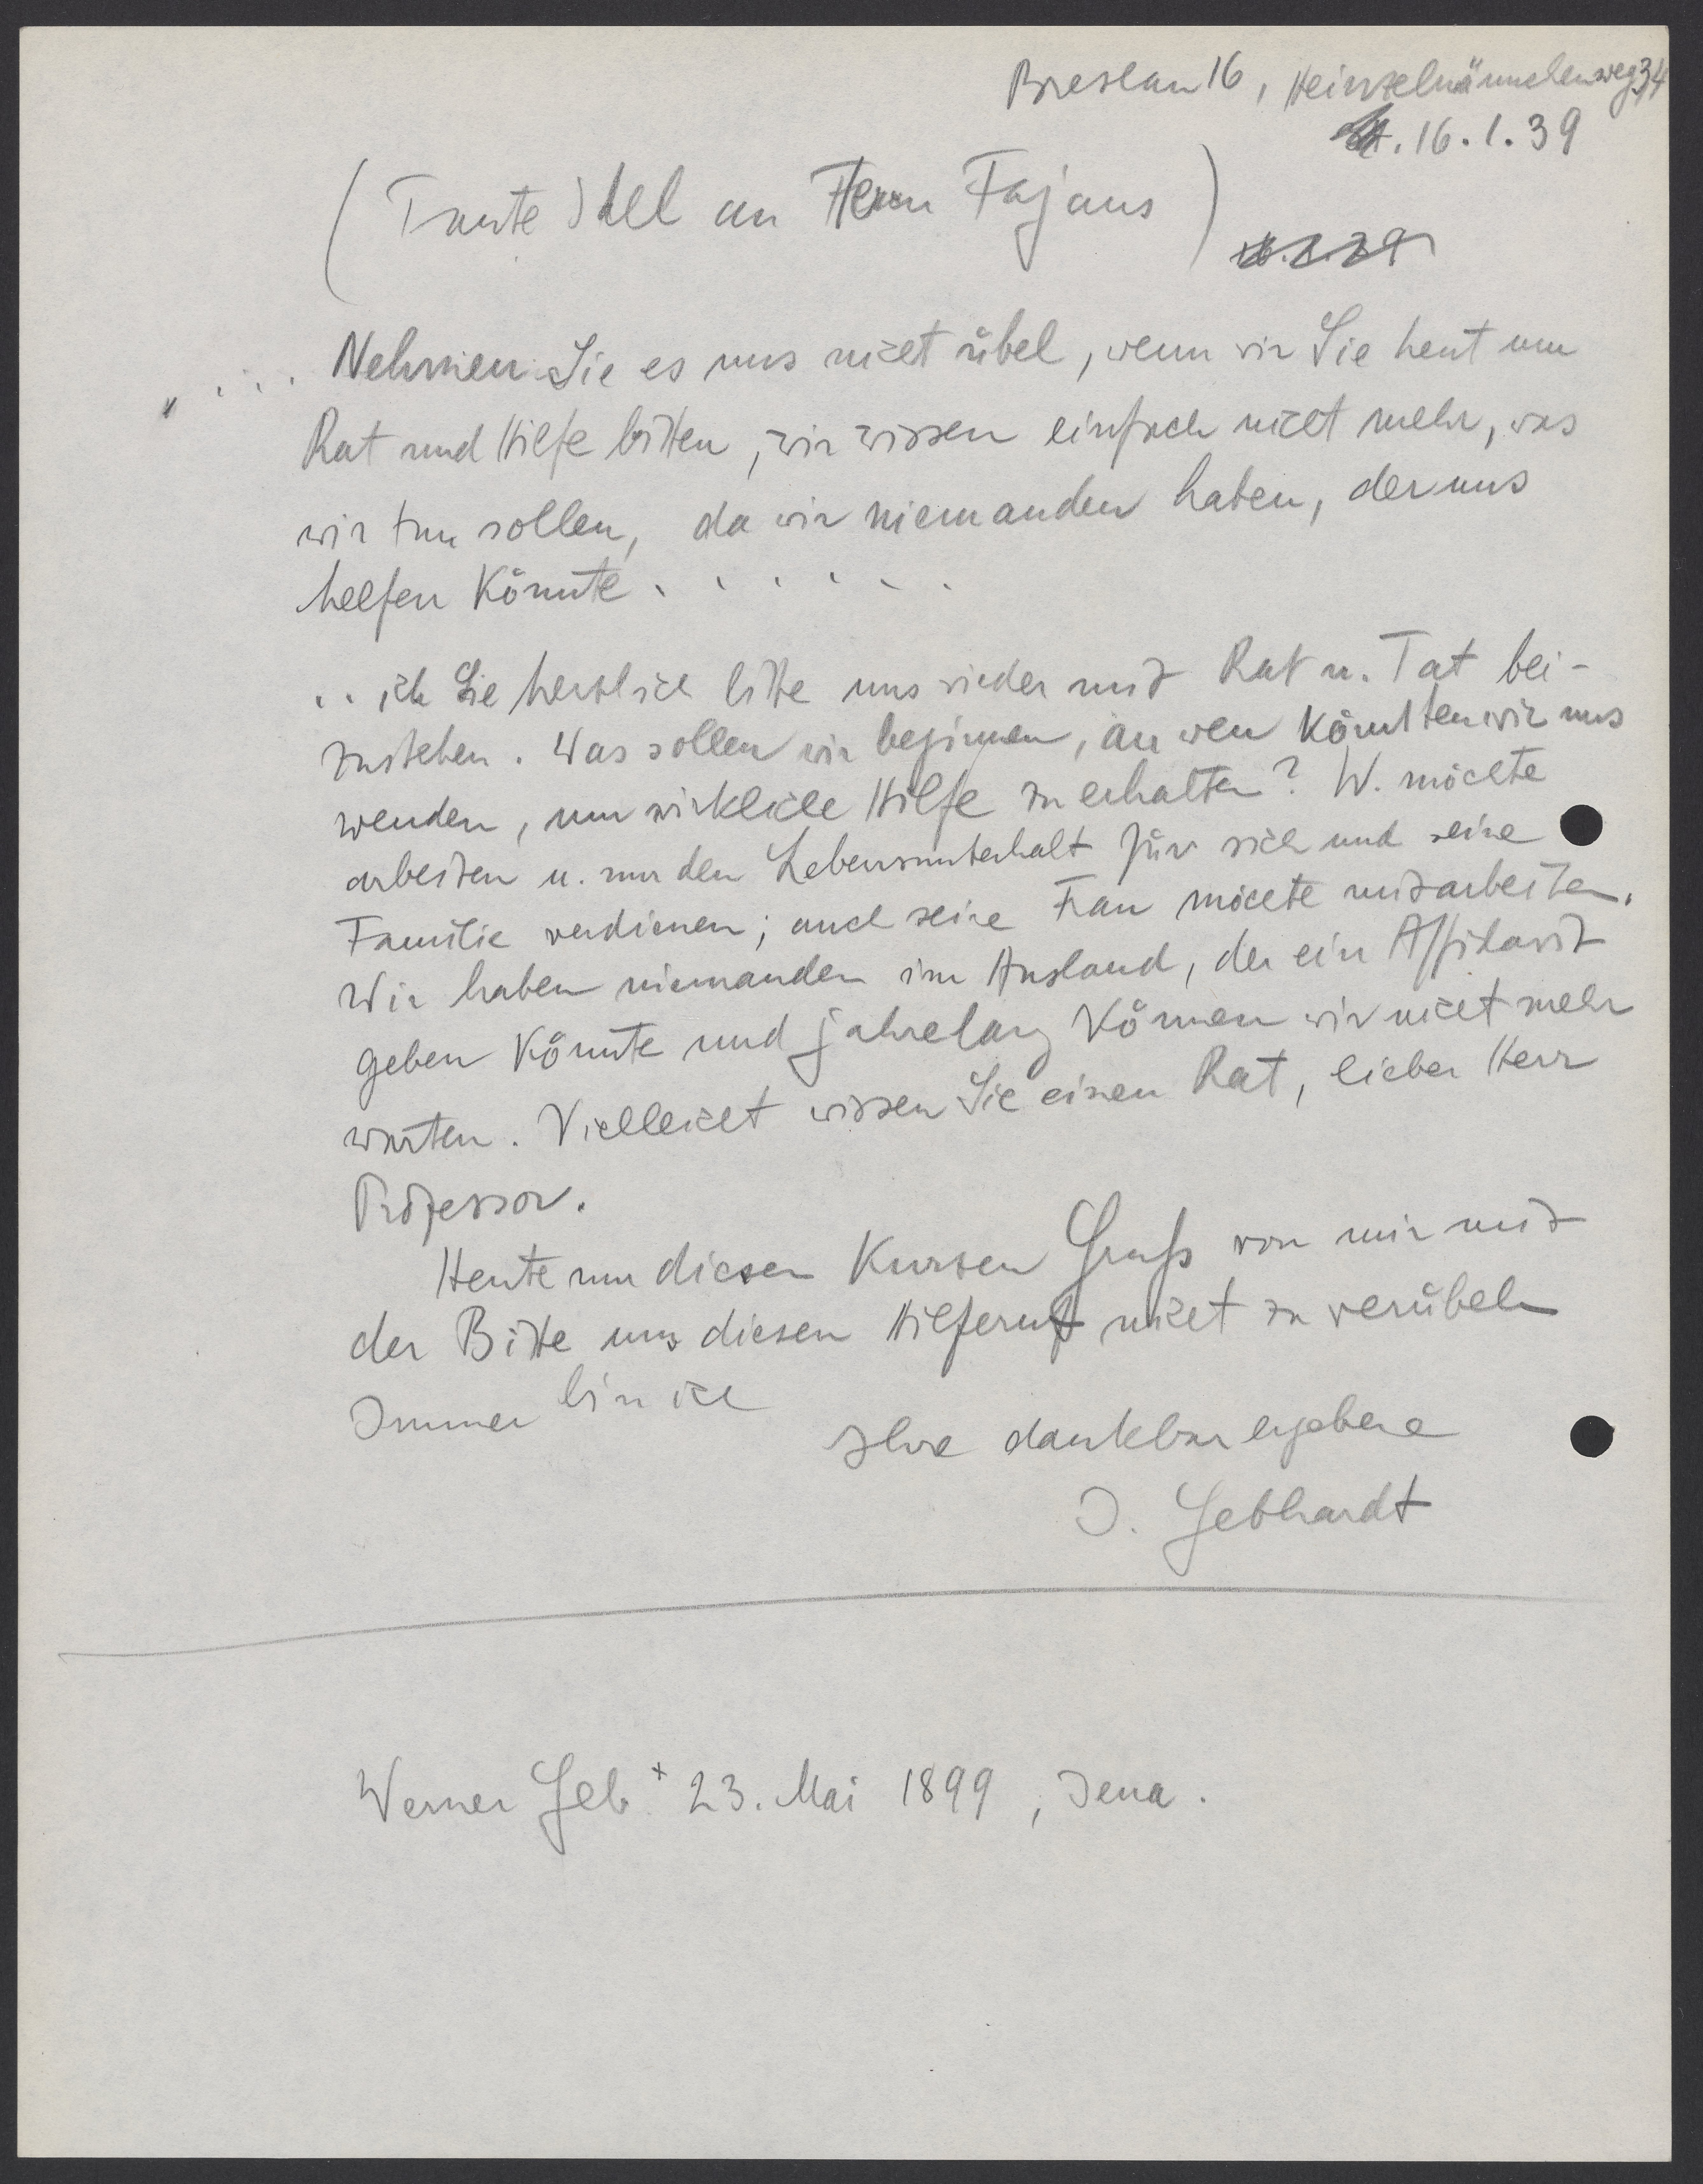 Breslau 16, Heinzelmännchenweg 34
16.1.39
(Tante Idel an Herrn Fajans)
„ . . . Nehmen Sie es uns nicht übel, wenn wir Sie heut um
Rat und Hilfe bitten, wir wissen einfach nicht mehr, was
wir tun sollen, da wir niemanden haben, der uns
helfen könnte . . . . . .
. . ich Sie herzlich bitte uns wieder mit Rat u. Tat bei-
zustehen. Was sollen wir beginnen, an wen könnten wir uns
wenden, um wirkliche Hilfe zu erhalten? W. möchte
arbeiten u. nur den Lebensunterhalt für sich und seine
Familie verdienen; auch seine Frau möchte mitarbeiten.
Wir haben niemanden im Ausland, der ein Affidavit
geben könnte und jahrelang können wir nicht mehr
warten. Vielleicht wissen Sie einen Rat, lieber Herr
Professor.
Heute nur diesen kurzen Gruß von mir mit
der Bitte uns diesen Hilferuf nicht zu verübeln
Immer bin ich
Ihre dankbar ergebene
I. Gebhardt
Werner Geb. + 23. Mai 1899, Jena.